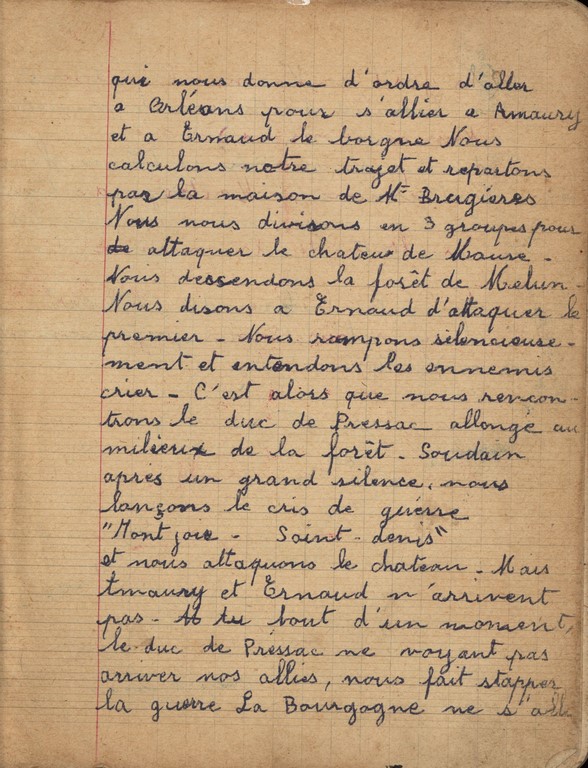 qui nous donne d'ordre d'aller
a Orléans pour s'allier a Amaury
et a Ernaud le borgne Nous
calculons notre trajet et repartons
par la maison de Mr Brugières
Nous nous divisons en 3 groupes pour
de attaquer le chateu de Mause -
Nous dessendons la forêt de Melun -
Nous disons a Ernaud d'attaquer le
premier - Nous rampons sélencieuse -
ment et entendons les ennemis
crier - C'est alors que nous rencon -
trons le duc de Pressac allongé au
milieux de la forêt - Soudain
après un grand silence, nous
lançons le cris de guérre
"Montjoie - Saint - denis"
et nous attaquons le chateau - Mais
Amaury et Ernaud n'arrivent
pas - tu bout d'un moment,
le duc de Préssac ne voyant pas
arriver nos allies, nous fait stopper
la guerre La Bourgogne ne s'alli